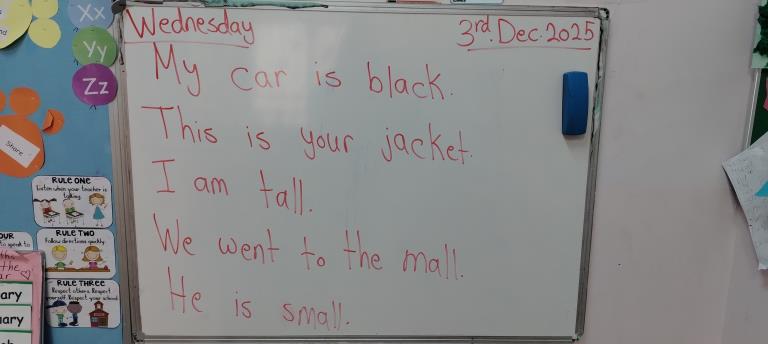 Wednesday 3rd. Dec. 2025
My car is black.
This is your jacket.
I am tall.
We went to the mall.
He is small.
Xx
Yy
Zz
Share
RULE ONE
Listen when your teacher is
talking.
RULE TWO
Follow directions quickly.
RULE THREE
Respect others. Respect
yourself. Respect your school.
OUR
to speak to
the
ary
ary